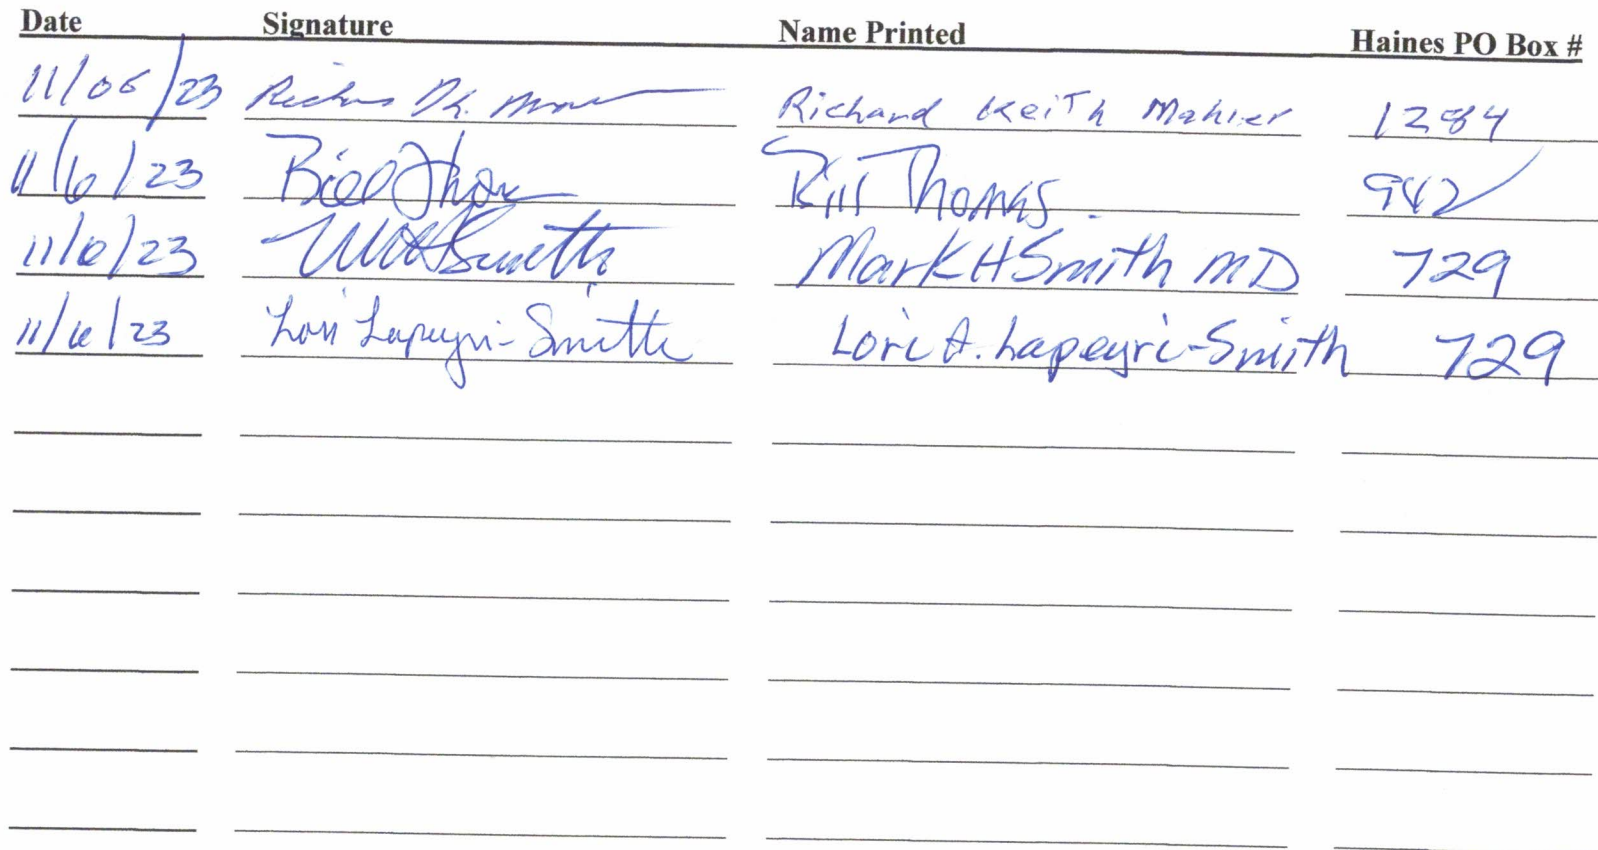 Date Signature Name Printed Haines PO Box #
11/06/23 Richard Keith 1284
11/6/23 Bill Thomas Bill Thomas. 942
11/6/23 Smith Mark H Smith MD 729
11/6/23 Lori Lapeyri-Smith Lori A. Lapeyri-Smith 729